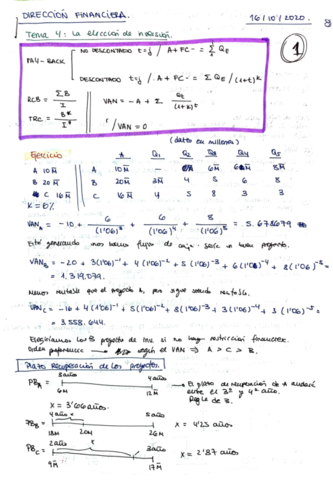 DIRECCIÓN FINANCIERA. 16/10/2020.
Tema 4: La elección de inversión.
1
PAY-BACK
NO DESCONTADO t=j / A+FC- = Σ Qt
DESCONTADO t=j / A+FC- = Σ Qt/(1+t)^k
RCB = ΣB/I
VAN = -A + Σ Qt/(1+k)^t
TRC = B*/I*
r / VAN = 0
(datos en millones)
Ejercicio A Q1 Q2 Q3 Q4 Q5
A 10M A 10M - 6M 8M
B 20M B 20M 3M 4 5 6 8
C 16M C 16M 4 5 8 3 3
K = 6%
VAN_A = -10 + 6/(1'06)³ + 6/(1'06)⁴ + 8/(1'06)⁵ = 5.678679
Está generando
VAN_B = -20 + 3(1'06)⁻¹ + 4(1'06)⁻² + 5(1'06)⁻³ + 6(1'06)⁻⁴ + 8(1'06)⁻⁵ =
= 1.319.099.
Menos rentable que el proyecto A, pero sigue siendo rentable.
VAN_C = -16 + 4(1'06)⁻¹ + 5(1'06)⁻² + 8(1'06)⁻³ + 3(1'06)⁻⁴ + 3(1'06)⁻⁵ =
= 3.558.644.
Elegiríamos los 3 proyectos de inv. si no hay restricción financiera.
Orden preferencia → según el VAN ⇒ A > C > B.
Plazo Recuperación de los proyectos
3 años 4 años
6M 12M
El plazo de recuperación de A estará
entre el 3º y 4º año.
Regla de 3.
x = 3'66 años
PB_B = 4 años 5 años
18M 20M 26M
x = 4'25 años
PB_C = 2 años x 3 años
9M 17M
x = 2'87 años